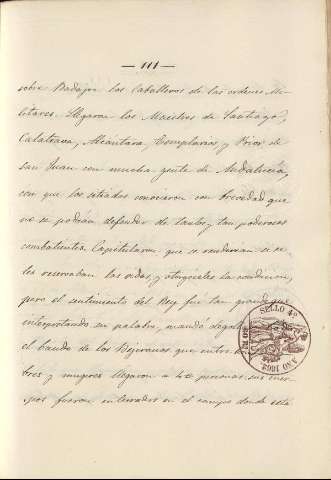 — 111 —
sobre Badajoz los Caballeros de las ordenes Mi-
litares. Llegaron los Maestres de Santiago,
Calatrava, Alcántara, Templarios y Prior de
san Juan con mucha gente de Andalucía,
con que los sitiados conocieron con brevedad que
no se podrían defender de tantos y tan poderosos
combatientes. Capitularon que se rendirian si se
les reservaban las vidas, y otorgoseles la condicion,
pero el sentimiento del Rey fue tan grande que
interpretando su palabra, mandó degollar
el bando de los Bejaranos que entre
bres y mugeres llegaron a 4 personas, sus cuer-
pos fueron enterrados en el campo donde está
SELLO 4º
AÑO